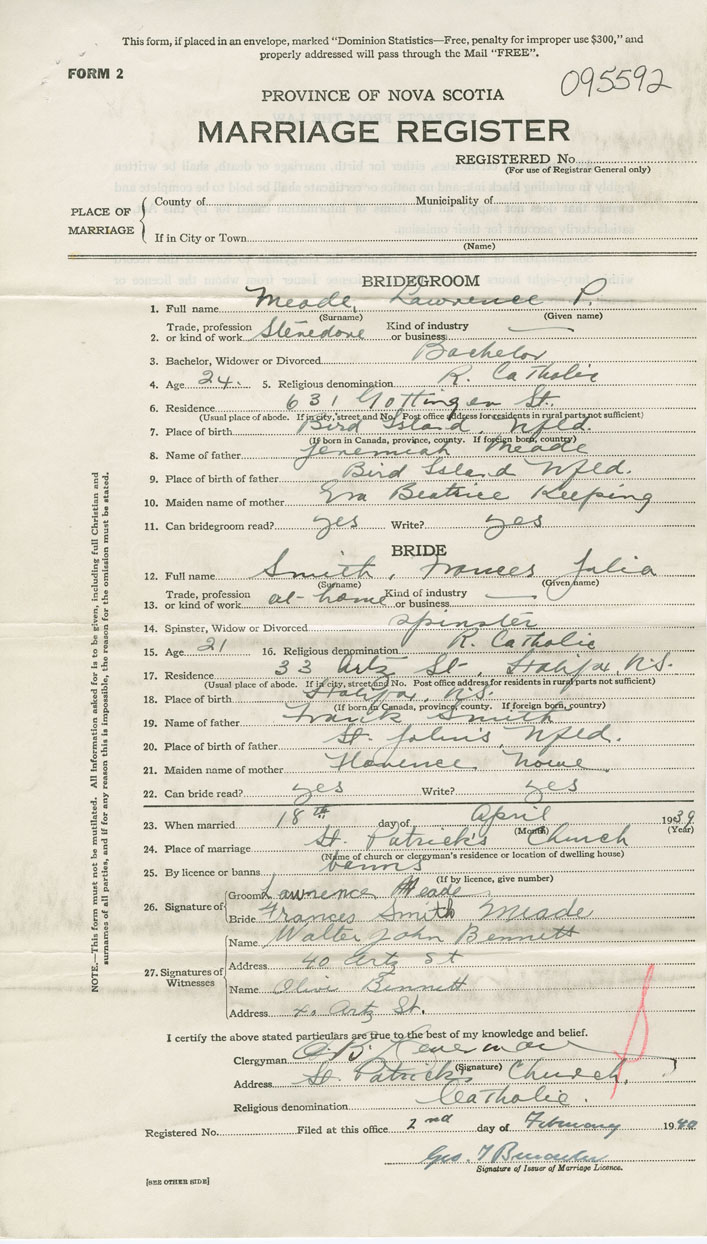 This form, if placed in an envelope, marked "Dominion Statistics—Free, penalty for improper use $300," and
properly addressed will pass through the Mail "FREE".
FORM 2
095592
PROVINCE OF NOVA SCOTIA
MARRIAGE REGISTER
REGISTERED No.
(For use of Registrar General only)
PLACE OF MARRIAGE
County of Municipality of
If in City or Town
(Name)
BRIDEGROOM
1. Full name Meade, Lawrence P.
(Surname) (Given name)
2. Trade, profession or kind of work Stevedore Kind of industry or business —
3. Bachelor, Widower or Divorced Bachelor
4. Age 24. 5. Religious denomination R. Catholic
6. Residence 631 Gottingen St.
(Usual place of abode. If in city, street and No. Post office address for residents in rural parts not sufficient)
7. Place of birth Bird Island, Nfld.
(If born in Canada, province, county. If foreign born, country)
8. Name of father Jeremiah Meade
9. Place of birth of father Bird Island Nfld.
10. Maiden name of mother Eva Beatrice Keeping
11. Can bridegroom read? yes Write? yes
BRIDE
12. Full name Smith, Frances Julia
(Surname) (Given name)
13. Trade, profession or kind of work at-home Kind of industry or business —
14. Spinster, Widow or Divorced spinster
15. Age 21 16. Religious denomination R. Catholic
17. Residence 33 Artz St., Halifax, N.S.
(Usual place of abode. If in city, street and No. Post office address for residents in rural parts not sufficient)
18. Place of birth Halifax, N.S.
(If born in Canada, province, county. If foreign born, country)
19. Name of father Frank Smith
20. Place of birth of father St. John's, Nfld.
21. Maiden name of mother Florence
22. Can bride read? yes Write? yes
23. When married 18th day of April 1939
(Month) (Year)
24. Place of marriage St. Patrick's Church
(Name of church or clergyman's residence or location of dwelling house)
25. By licence or banns banns
(If by licence, give number)
26. Signature of Groom Lawrence Meade
Bride Frances Smith Meade
27. Signatures of Witnesses
Name Walter John Bennett
Address 40 Artz St
Name Olive Bennett
Address 40 Artz St.
I certify the above stated particulars are true to the best of my knowledge and belief.
Clergyman
(Signature)
Address St. Patrick's Church,
Religious denomination Catholic.
Registered No. Filed at this office 2nd day of February 1940
Geo. T
Signature of Issuer of Marriage Licence.
[SEE OTHER SIDE]
NOTE.—This form must not be mutilated. All information asked for is to be given, including full Christian and
surnames of all parties, and if for any reason this is impossible, the reason for the omission must be stated.